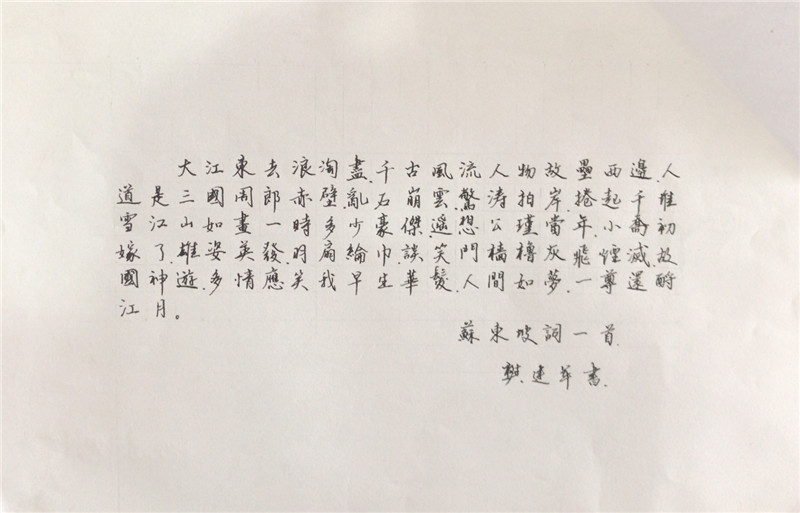 大江東去浪淘盡,千古風流人物故壘西邊,人
道是三國周郎赤壁,亂石崩雲驚涛拍岸捲起千堆
雪江山如畫一時多少豪傑遥想公瑾當年,小喬初
嫁了雄姿英發,羽扇綸巾談笑門檣櫓灰飛煙滅,故
國神遊,多情應笑我早生華髮,人間如夢,一尊還酹
江月。
蘇東坡詞一首
樊建年書